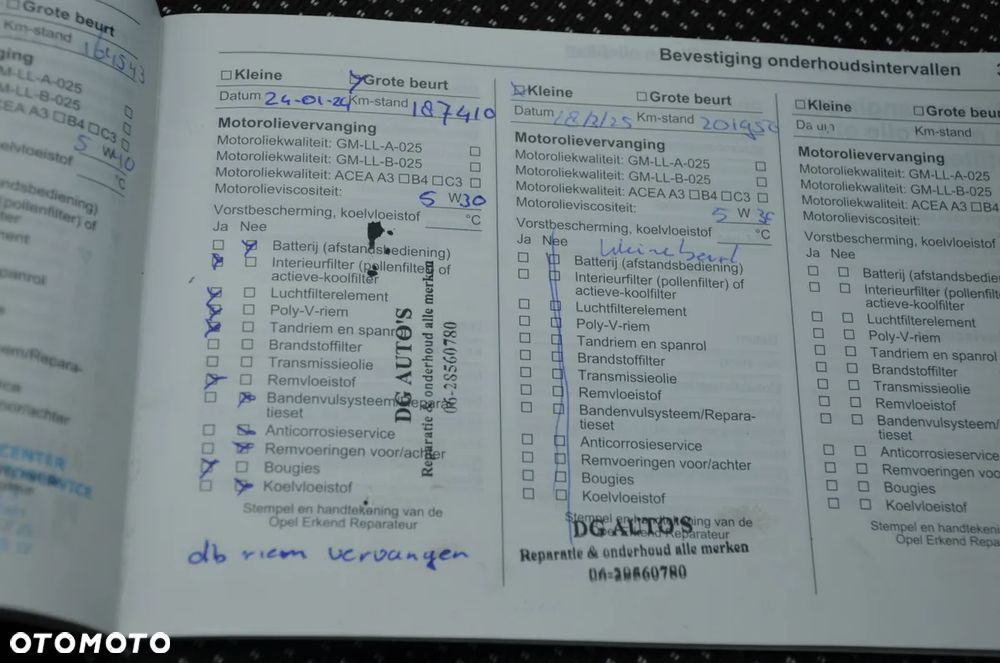 Grote beurt
Km-stand 164543
GM-LL-A-025
GM-LL-B-025
ACEA A3 B4 C3
5 W 40
°C
(pollenfilter) of
CENTER
Bevestiging onderhoudsintervallen
Kleine Grote beurt
Datum 24-01-24 Km-stand 187410
Motorolievervanging
Motoroliekwaliteit: GM-LL-A-025
Motoroliekwaliteit: GM-LL-B-025
Motoroliekwaliteit: ACEA A3 B4 C3
Motorolieviscositeit: 5 W 30
Vorstbescherming, koelvloeistof °C
Ja Nee
Batterij (afstandsbediening)
Interieurfilter (pollenfilter) of
actieve-koolfilter
Luchtfilterelement
Poly-V-riem
Tandriem en spanrol
Brandstoffilter
Transmissieolie
Remvloeistof
Bandenvulsysteem/Repara-
tieset
Anticorrosieservice
Remvoeringen voor/achter
Bougies
Koelvloeistof
Stempel en handtekening van de
Opel Erkend Reparateur
db riem vervangen
DG AUTO'S
Reparatie & onderhoud alle merken
06-28560780
Kleine Grote beurt
Datum 18/2/25 Km-stand 201950
Motorolievervanging
Motoroliekwaliteit: GM-LL-A-025
Motoroliekwaliteit: GM-LL-B-025
Motoroliekwaliteit: ACEA A3 B4 C3
Motorolieviscositeit: 5 W
Vorstbescherming, koelvloeistof °C
Ja Nee
kleine beurt
Batterij (afstandsbediening)
Interieurfilter (pollenfilter) of
actieve-koolfilter
Luchtfilterelement
Poly-V-riem
Tandriem en spanrol
Brandstoffilter
Transmissieolie
Remvloeistof
Bandenvulsysteem/Repara-
tieset
Anticorrosieservice
Remvoeringen voor/achter
Bougies
Koelvloeistof
Stempel en handtekening van de
Opel Erkend Reparateur
DG AUTO'S
Reparatie & onderhoud alle merken
06-28560780
Kleine Grote beu
Datum Km-stand
Motorolievervanging
Motoroliekwaliteit: GM-LL-A
Motoroliekwaliteit: GM-LL-B
Motoroliekwaliteit: ACEA A3
Motorolieviscositeit:
Vorstbescherming, koelvloeistof
Ja Nee
Batterij (afstandsbedie
Interieurfilter (pollenfilte
actieve-koolfilter
Luchtfilterelement
Poly-V-riem
Tandriem en spanrol
Brandstoffilter
Transmissieolie
Remvloeistof
Bandenvulsysteem/
tieset
Anticorrosieservice
Remvoeringen voo
Bougies
Koelvloeistof
Stempel en handteken
Opel Erkend Repara
OTOMOTO